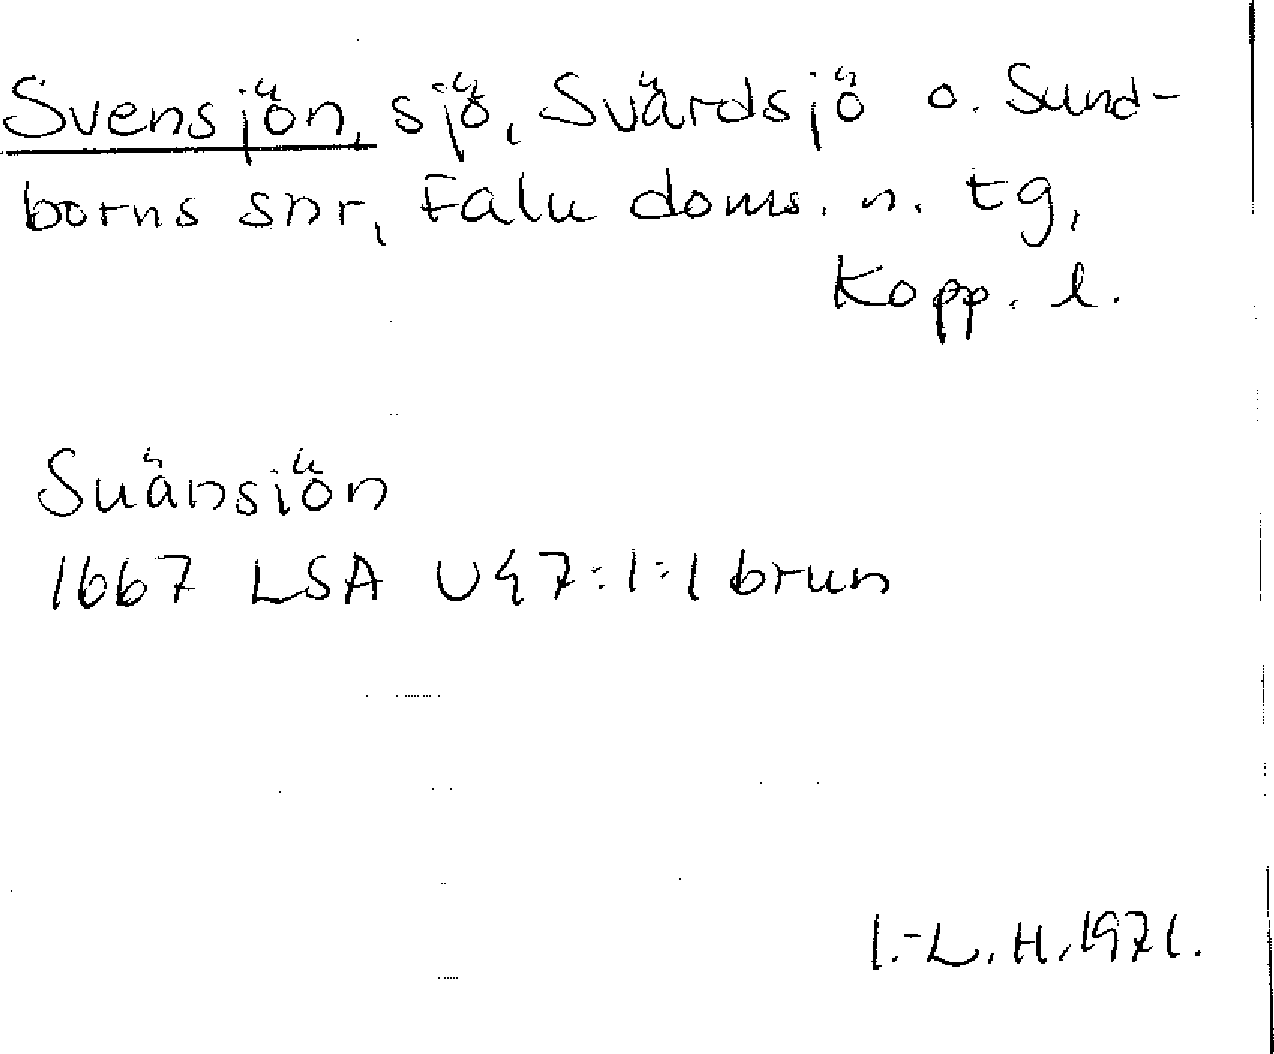 Svensjön, sjö, Svärdsjö o. Sund-
borns snr, Falu doms. n. tg,
Kopp. l.
Suänsiön
1667 LSA U47:1:1 brun
I.-L. H. 1971.